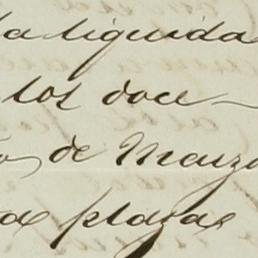 la liquida
los doce
de Marzo
plazas